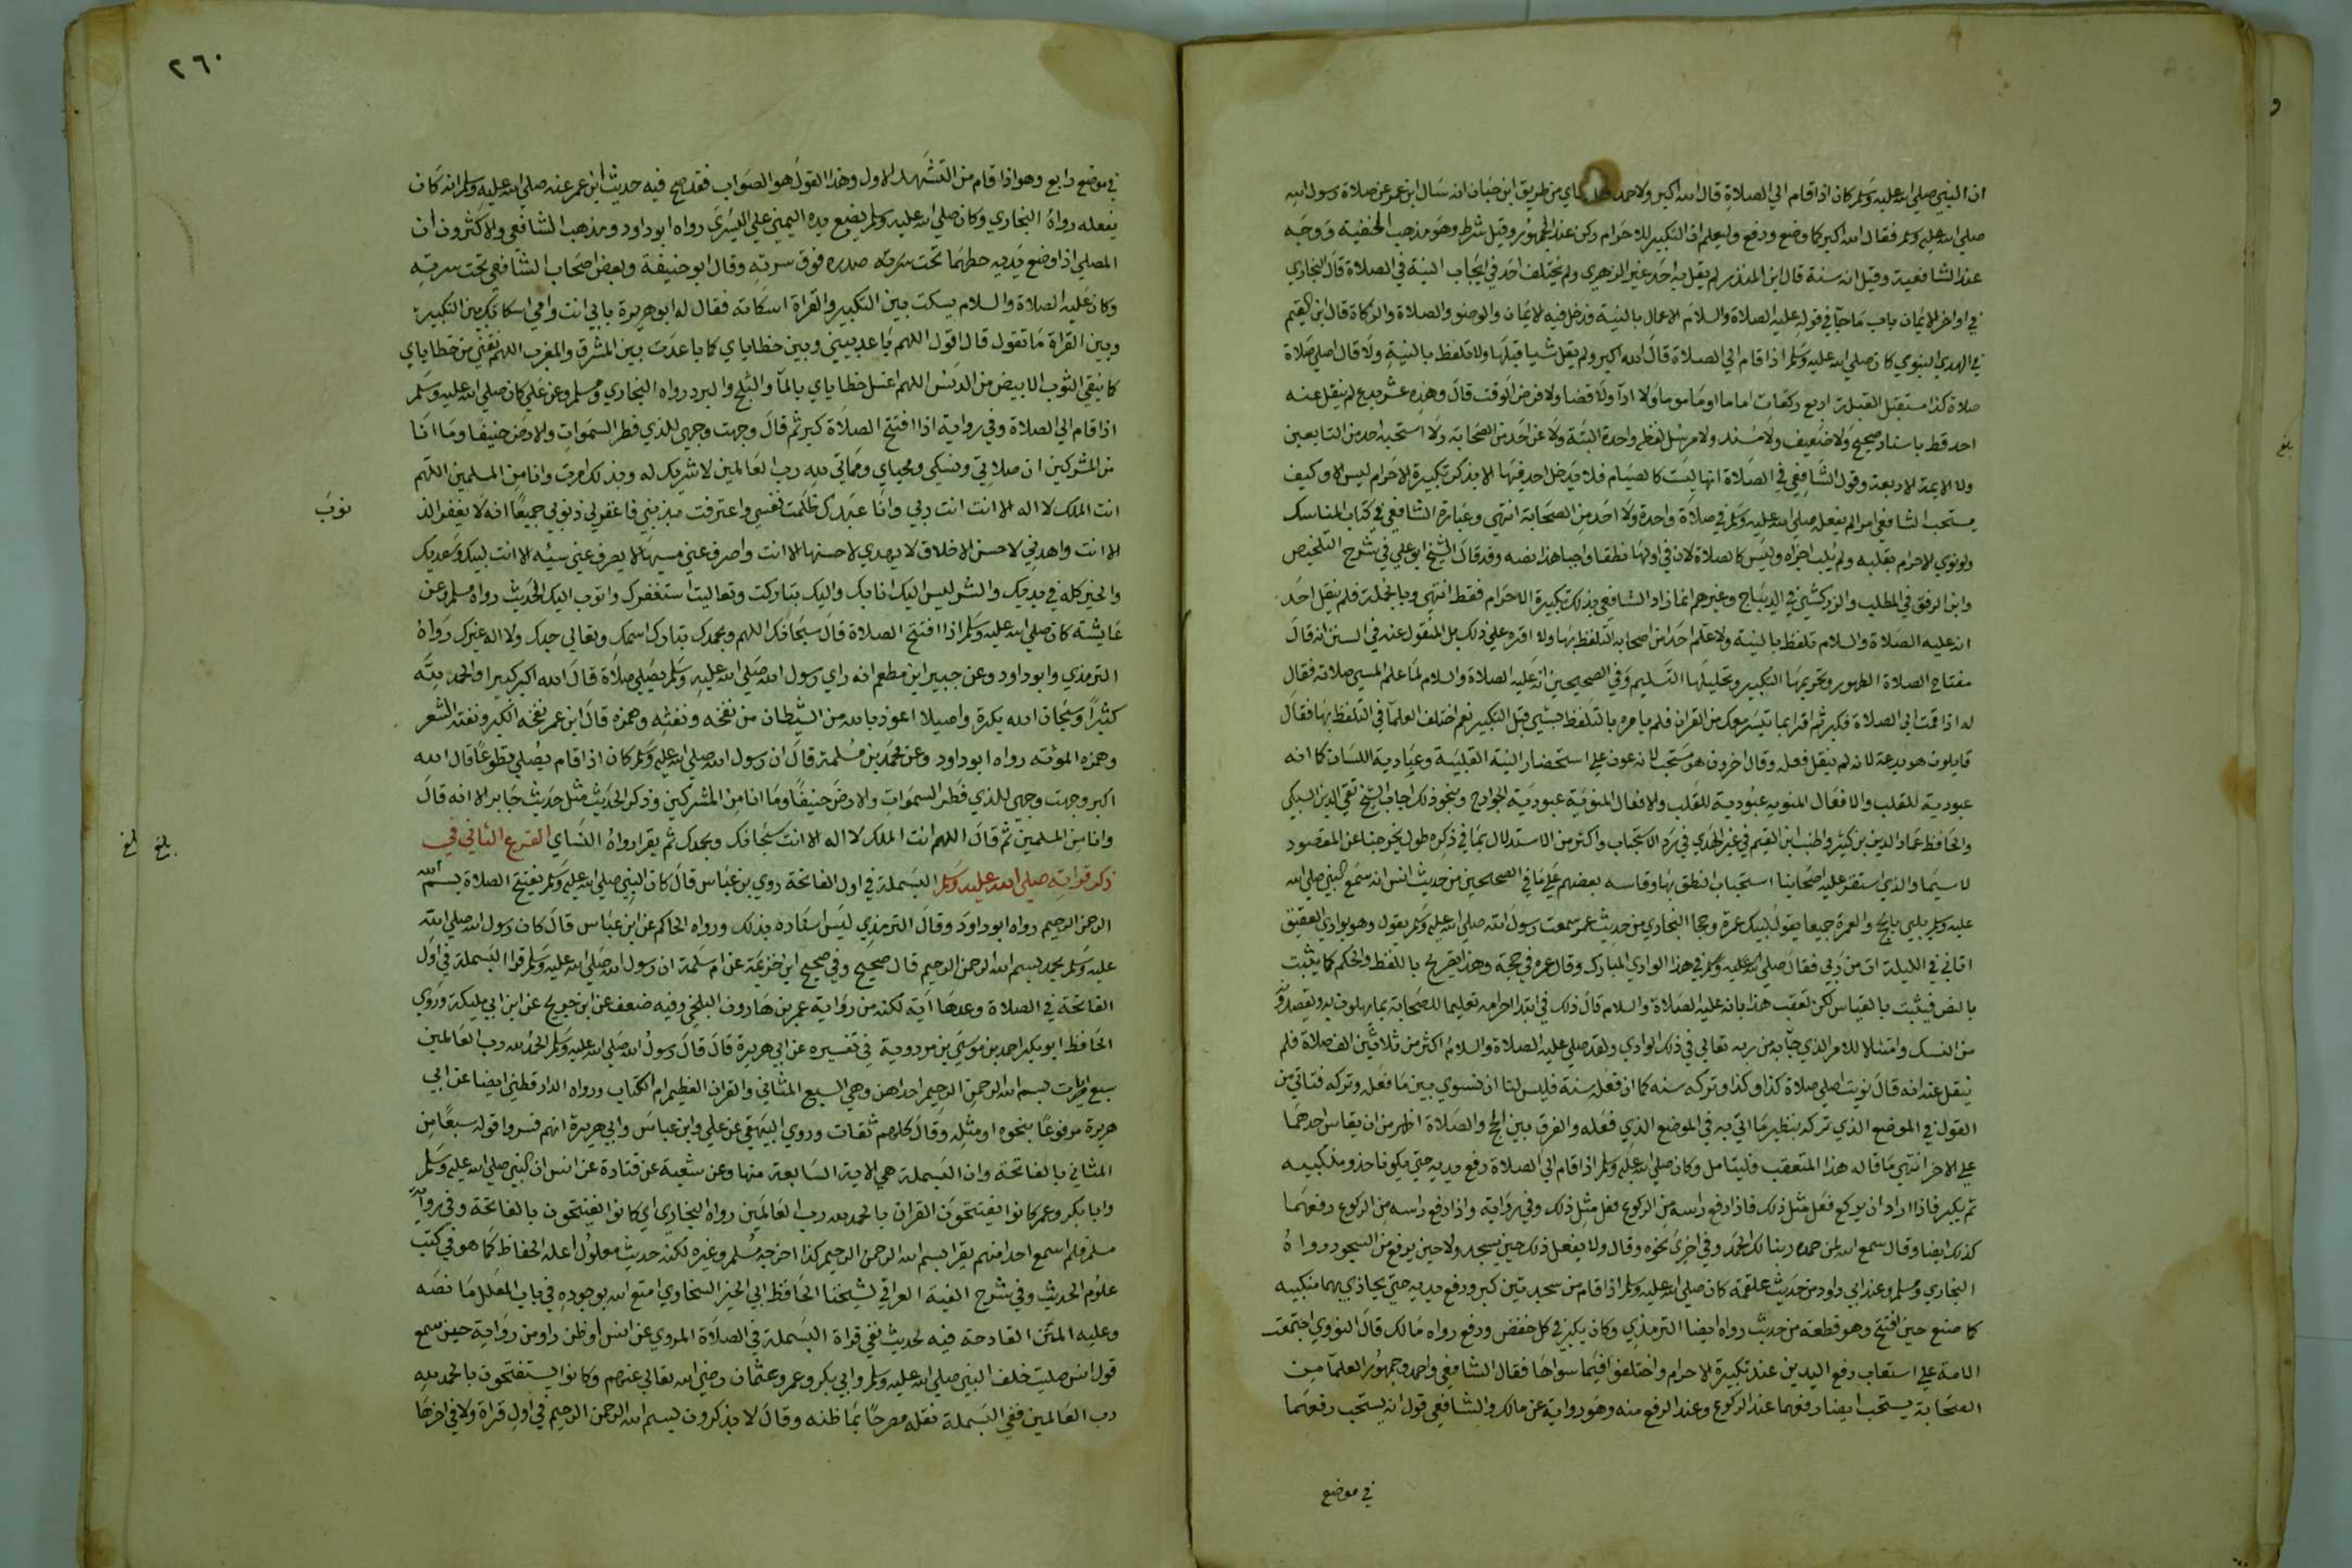 ان النبي صلي الله عليه وسلم كان اذا قام الي الصلاة قال الله اكبر ولاحمد والنساي من طريق ابن حبان انه سال ابن عمر عن صلاة رسول الله
صلي الله عليه وسلم فقال الله اكبر كلما وضع ورفع وليعلم ان التكبير للاحرام ركن عند الجمهور وقيل شرط وهو مذهب الحنفية ووجه
عند الشافعية وقيل انه سنة قال ابن المنذر لم يقل به احد غير الزهري ولم يختلف احد في ايجاب النية في الصلاة قال البخاري
في اواخر الايمان باب ما جآ في قوله عليه الصلاة والسلام الاعمال بالنية فدخل فيه الايمان والوضو والصلاة والزكاة قال ابن القيم
في الهدي النبوي كان صلي الله عليه وسلم اذا قام الي الصلاة قال الله اكبر ولم يقل شيا قبلها ولا تلفظ بالنية ولا قال اصلي صلاة
صلاة كذا مستقبل القبلة اربع ركعات اماما او ماموما ولا ادآ ولا قضا ولا فرض الوقت قال وهذه عشر بدع لم ينقل عنه
احد قط باسناد صحيح ولا ضعيف ولا مسند ولا مرسل لفظة واحدة البتة ولا عن احد من الصحابة ولا استحبه احد من التابعين
ولا الايمة الاربعة وقول الشافعي في الصلاة انها ليست كالصيام فلا يدخل احد فيها الا بذكر تكبيرة الاحرام ليس الا وكيف
يستحب الشافعي امرا لم يفعله صلي الله عليه وسلم في صلاة واحدة ولا احد من الصحابة انتهي وعبارة الشافعي في كتاب المناسك
ولو نوي الاحرام بقلبه ولم يلب اجزاه وليس كالصلاة لان في اولها نطقا واجبا هذا نصه وقد قال الشيخ ابو علي في شرح التلخيص
وابن الرفق في المطلب والزركشي في الديباج وغيرهم انما اراد الشافعي بذلك تكبيرة الاحرام فقط انتهي وبالجملة فلم ينقل احد
انه عليه الصلاة والسلام تلفظ بالنية ولا علم احدا من اصحابه التلفظ بها ولا اقره علي ذلك بل المنقول عنه في السنن انه قال
مفتاح الصلاة الطهور وتحريمها التكبير وتحليلها التسليم وفي الصحيحين انه عليه الصلاة والسلام لما علم المسي صلاته فقال
له اذا قمت الي الصلاة فكبر ثم اقرا بما تيسر معك من القران فلم يامره بالتلفظ بشي قبل التكبير نعم اختلف العلمآ في التلفظ بها فقال
قايلون هو بدعة لانه لم ينقل فعله وقال اخرون هو مستحب لانه عون علي استحضار النية القلبية وعبادية اللسان كما انه
عبودية للقلب والافعال المنويه عبودية للقلب والافعال المنوية عبودية الجوارح وبنحو ذلك اجاب الشيخ تقي الدين السبكي
والحافظ عماد الدين بن كثير واطنب ابن القيم في غير الهدي في رد الاستحباب واكثر من الاستدلال بما في ذكره طول يخرجنا عن المقصود
لا سيما والذي استقر عليه اصحابنا استحباب النطق بها وقاسه بعضهم علي ما في الصحيحين من حديث انس انه سمع النبي صلي الله
عليه وسلم يلبي بالحج والعمرة جميعا يقول لبيك عمرة وحجا البخاري من حديث عمر سمعت رسول الله صلي الله عليه وسلم يقول وهو بوادي العقيق
اتاني في الليلة ات من ربي فقال صلي في هذا الوادي المبارك وقال عمره في حجة وهذا تصريح باللفظ والحكم كما يثبت
بالنص فيثبت بالقياس لكن تعقب هذا بانه عليه الصلاة والسلام قال ذلك في ابتدا احرامه تعليما للصحابة بما يهلون به ويقصدونه
من النسك وامتثالا للامر الذي جآه من ربه تعالي في ذلك الوادي ولقد صلي عليه الصلاة والسلام اكثر من ثلاثين الف صلاة فلم
ينقل عنه انه قال نويت اصلي صلاة كذا وكذا وتركه سنه كما ان فعله سنة فليس لنا ان نسوي بين ما فعله وتركه فناتي من
القول في الموضع الذي تركه بنظير ما اتي به في الموضع الذي فعله والفرق بين الحج والصلاة اظهر من ان يقاس احدهما
علي الاخر انتهي ما قاله هذا المتعقب فليتامل وكان صلي الله عليه وسلم اذا قام الي الصلاة رفع يديه حتي يكونا حذو منكبيه
ثم يكبر فاذا اراد ان يركع فعل مثل ذلك فاذا رفع راسه من الركوع فعل مثل ذلك وفي رواية واذا رفع راسه من الركوع رفعهما
كذلك ايضا وقال سمع الله لمن حمده ربنا لك الحمد وفي اخري نحوه وقال ولا يفعل ذلك حين يسجد ولا حين يرفع من السجود رواه
البخاري ومسلم وعند ابي داود من حديث علقمة كان صلي الله عليه وسلم اذا قام من سجدتين كبر ورفع يديه حتي يحاذي بهما منكبيه
كما صنع حين افتتح وهو قطعة من حديث رواه ايضا الترمذي وكان يكبر في كل خفض ورفع رواه مالك قال النووي اجتمعت
الامة علي استحباب رفع اليدين عند تكبيرة الاحرام واختلفوا فيما سواها فقال الشافعي واحمد وجمهور العلمآ من
الصحابة يستحب ايضا رفعهما عند الركوع وعند الرفع منه وهو رواية عن مالك والشافعي قول انه يستحب رفعهما
في موضع
بلغ
٢٦٠
في موضع رابع وهو اذا قام من التشهد الاول وهذا القول هو الصواب فقد صح فيه حديث ابن عمر عنه صلي الله عليه وسلم انه كان
يفعله رواه البخاري وكان صلي الله عليه وسلم يضع يده اليمني علي اليسري رواه ابو داود ومذهب الشافعي والاكثرون ان
المصلي اذا وضع يديه حطهما تحت صدره فوق سرته وقال ابو حنيفة وبعض اصحاب الشافعي تحت سرته
وكان عليه الصلاة والسلام يسكت بين التكبير والقراة اسكاتة فقال له ابو هريرة بابي انت وامي اسكاتك بين التكبير
وبين القراة ما تقول قال اقول اللهم باعد بيني وبين خطاياي كما باعدت بين المشرق والمغرب اللهم نقني من خطاياي
كما ينقي الثوب الابيض من الدنس اللهم اغسل خطاياي بالمآ والثلج والبرد رواه البخاري ومسلم وعن علي كان صلي الله عليه وسلم
اذا قام الي الصلاة وفي رواية اذا افتتح الصلاة كبر ثم قال وجهت وجهي للذي فطر السموات والارض حنيفا وما انا
من المشركين ان صلاتي ونسكي ومحياي ومماتي لله رب العالمين لا شريك له وبذلك امرت وانا من المسلمين اللهم
انت الملك لا اله الا انت انت ربي وانا عبدك ظلمت نفسي واعترفت بذنبي فاغفر لي ذنوبي جميعا انه لا يغفر الذ
نوب
الا انت واهدني لاحسن الاخلاق لا يهدي لاحسنها الا انت واصرف عني سيها لا يصرف عني سيئه الا انت لبيك وسعديك
والخير كله في يديك والشر ليس اليك انا بك واليك تباركت وتعاليت استغفرك واتوب اليك الحديث رواه مسلم وعن
عايشة كان صلي الله عليه وسلم اذا افتتح الصلاة قال سبحانك اللهم وبحمدك تبارك اسمك وتعالي جدك ولا اله غيرك رواه
الترمذي وابو داود وعن جبير ابن مطعم انه راي رسول الله صلي الله عليه وسلم يصلي صلاة قال الله اكبر كبيرا والحمد لله
كثيرا وسبحان الله بكرة واصيلا اعوذ بالله من الشيطان من نفخه ونفثه وهمزه قال ابن عمر نفخه الكبر ونفثه الشعر
وهمزه الموتة رواه ابو داود وعن محمد بن مسلمة قال ان رسول الله صلي الله عليه وسلم كان اذا قام يصلي تطوعا قال الله
اكبر وجهت وجهي للذي فطر السموات والارض حنيفا وما انا من المشركين وذكر الحديث مثل حديث جابر الا انه قال
وانا من المسلمين ثم قال اللهم انت الملك لا اله الا انت سبحانك وبحمدك ثم يقرا رواه النساي الفرع الثاني في
بلغ
ذكر قراته صلي الله عليه وسلم البسملة في اول الفاتحة روي بن عباس قال كان النبي صلي الله عليه وسلم يفتتح الصلاة بسم الله
الرحمن الرحيم رواه ابو داود وقال الترمذي ليس اسناده بذلك ورواه الحاكم عن ابن عباس قال كان رسول الله صلي الله
عليه وسلم يجهر ببسم الله الرحمن الرحيم قال صحيح وفي صحيح ابن خزيمة عن ام سلمة ان رسول الله صلي الله عليه وسلم قرا البسملة في اول
الفاتحة في الصلاة وعدها اية لكنه من رواية عمر بن هارون البلخي وفيه ضعف عن ابن جريج عن ابن ابي مليكة وروي
الحافظ ابو بكر احمد بن موسي بن مردوية في تفسيره عن ابي هريرة قال قال رسول الله صلي الله عليه وسلم الحمد لله رب العالمين
سبع ايات بسم الله الرحمن الرحيم احداهن وهي السبع المثاني والقران العظيم ام الكتاب ورواه الدارقطني ايضا عن ابي
هريرة مرفوعا بنحوه او مثله وقال كلهم ثقات وروي البيهقي عن علي وابن عباس وابي هريرة انهم فسروا قوله سبعا من
المثاني بالفاتحة وان البسملة هي الاية السابعة منها وعن شعبة عن قتادة عن انس ان النبي صلي الله عليه وسلم
وابا بكر وعمر كانوا يفتتحون القران بالحمد لله رب العالمين رواه البخاري اي كانوا يفتتحون بالفاتحة وفي رواية
مسلم فلم اسمع احدا منهم يقرا بسم الله الرحمن الرحيم كذا اخرجه مسلم وغيره لكنه حديث معلول اعله الحفاظ كما هو في كتب
علوم الحديث وفي شرح الفية العراقي لشيخنا الحافظ ابي الخير السخاوي امتع الله بوجوده في باب المعلل ما نصه
وعليه المتن القادحة فيه لحديث نفي قراة البسملة في الصلاة المروي عن انس اذ ظن راو من رواية حين سمع
قول انس صليت خلف النبي صلي الله عليه وسلم وابي بكر وعمر وعثمان رضي الله تعالي عنهم وكانوا يستفتحون بالحمد لله
رب العالمين نفي البسملة نقله مصرحا بما ظنه وقال لا يذكرون بسم الله الرحمن الرحيم في اول قراة ولا في اخرها